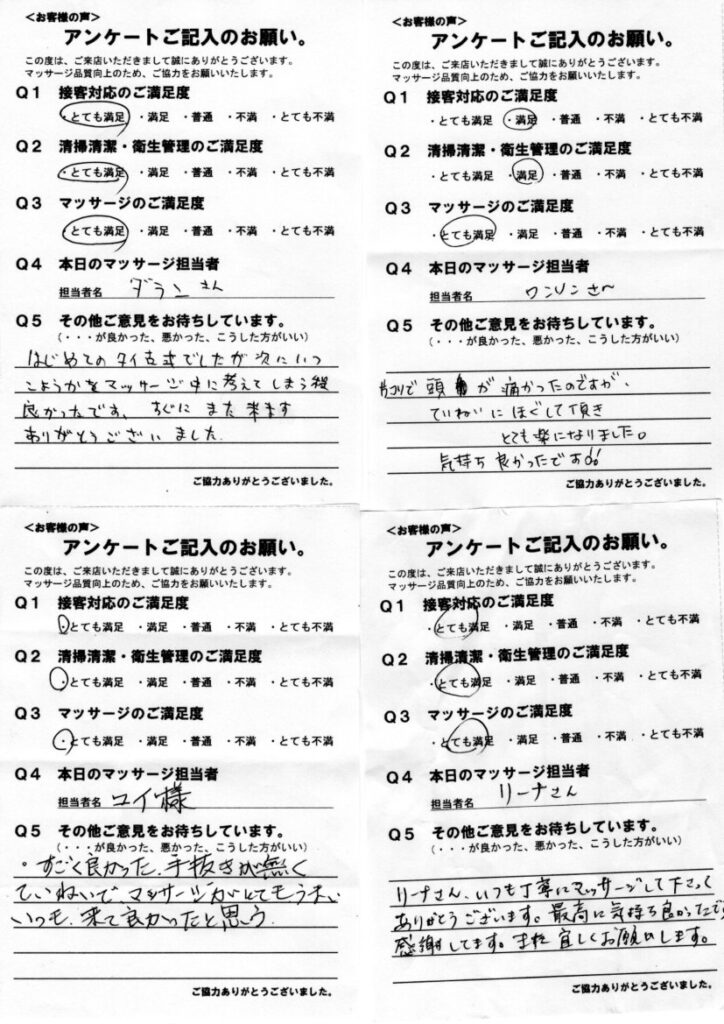 <お客様の声>
アンケートご記入のお願い。
この度は、ご来店いただきまして誠にありがとうございます。
マッサージ品質向上のため、ご協力をお願いいたします。
Q1 接客対応のご満足度
・とても満足 ・満足 ・普通 ・不満 ・とても不満
Q2 清掃清潔・衛生管理のご満足度
・とても満足 ・満足 ・普通 ・不満 ・とても不満
Q3 マッサージのご満足度
・とても満足 ・満足 ・普通 ・不満 ・とても不満
Q4 本日のマッサージ担当者
担当者名 ダランさん
Q5 その他ご意見をお待ちしています。
(・・・が良かった、悪かった、こうした方がいい)
はじめてのタイ古式でしたが次にいつ
こようかをマッサージ中に考えてしまう程
良かったです。すぐにまた来ます
ありがとうございました.
ご協力ありがとうございました。
<お客様の声>
アンケートご記入のお願い。
この度は、ご来店いただきまして誠にありがとうございます。
マッサージ品質向上のため、ご協力をお願いいたします。
Q1 接客対応のご満足度
・とても満足 ・満足 ・普通 ・不満 ・とても不満
Q2 清掃清潔・衛生管理のご満足度
・とても満足 ・満足 ・普通 ・不満 ・とても不満
Q3 マッサージのご満足度
・とても満足 ・満足 ・普通 ・不満 ・とても不満
Q4 本日のマッサージ担当者
担当者名 ワンソンさ〜
Q5 その他ご意見をお待ちしています。
(・・・が良かった、悪かった、こうした方がいい)
肩コリで頭が痛かったのですが、
ていねいにほぐして頂き
とても楽になりました。
気持ち良かったです!!
ご協力ありがとうございました。
<お客様の声>
アンケートご記入のお願い。
この度は、ご来店いただきまして誠にありがとうございます。
マッサージ品質向上のため、ご協力をお願いいたします。
Q1 接客対応のご満足度
・とても満足 ・満足 ・普通 ・不満 ・とても不満
Q2 清掃清潔・衛生管理のご満足度
・とても満足 ・満足 ・普通 ・不満 ・とても不満
Q3 マッサージのご満足度
・とても満足 ・満足 ・普通 ・不満 ・とても不満
Q4 本日のマッサージ担当者
担当者名 ユイ様
Q5 その他ご意見をお待ちしています。
(・・・が良かった、悪かった、こうした方がいい)
・すごく良かった、手抜きが無く
ていねいで、マッサージがとてもうまい
いつも、来て良かったと思う.
ご協力ありがとうございました。
<お客様の声>
アンケートご記入のお願い。
この度は、ご来店いただきまして誠にありがとうございます。
マッサージ品質向上のため、ご協力をお願いいたします。
Q1 接客対応のご満足度
・とても満足 ・満足 ・普通 ・不満 ・とても不満
Q2 清掃清潔・衛生管理のご満足度
・とても満足 ・満足 ・普通 ・不満 ・とても不満
Q3 マッサージのご満足度
・とても満足 ・満足 ・普通 ・不満 ・とても不満
Q4 本日のマッサージ担当者
担当者名 リーナさん
Q5 その他ご意見をお待ちしています。
(・・・が良かった、悪かった、こうした方がいい)
リーナさん、いつも丁寧にマッサージして下さって
ありがとうございます。最高に気持ち良かったです
感謝してます。また宜しくお願いします。
ご協力ありがとうございました。